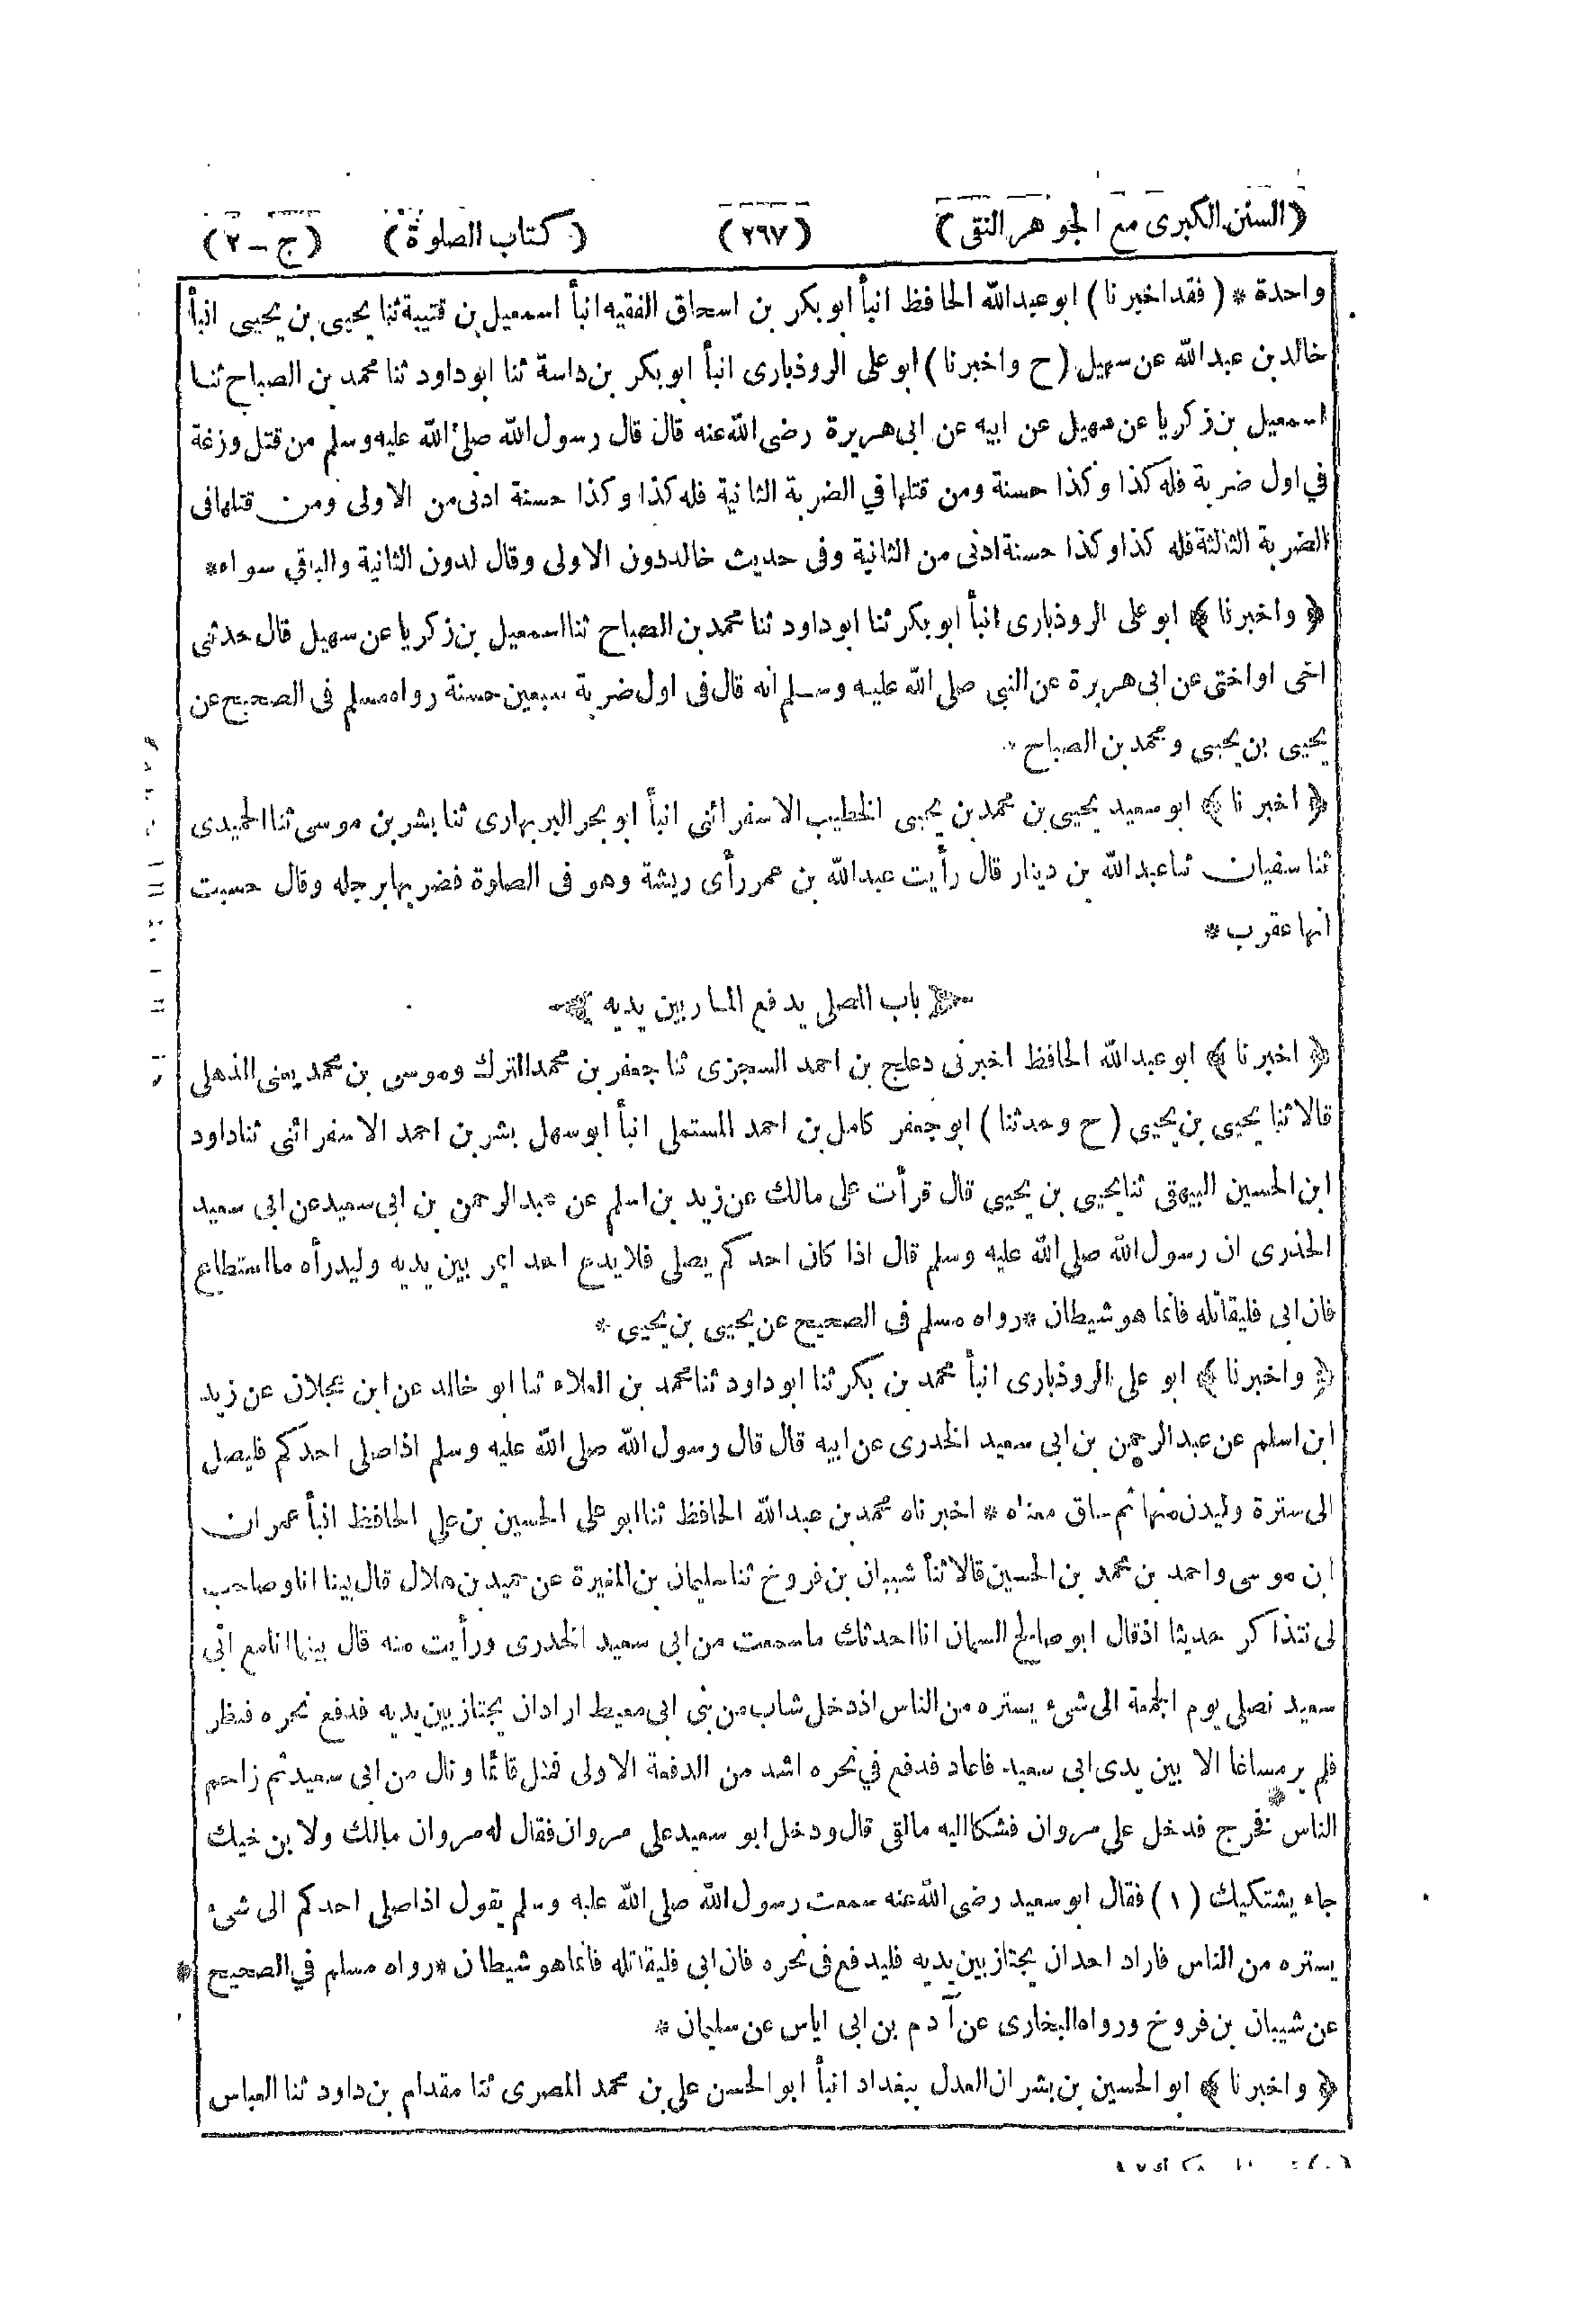 (السنن الكبرى مع الجوهر النقى) (٢٩٧) (كتاب الصلوة) (ج-٢)
واحدة * (فقد اخبرنا) ابو عبد الله الحافظ انبأ ابو بكر بن اسحاق الفقيه انبأ اسمعيل بن قتيبة ثنا يحيى بن يحيى انبأ
خالد بن عبد الله عن سهيل (ح واخبرنا) ابو على الروذبارى انبأ ابو بكر بن داسة ثنا ابو داود ثنا محمد بن الصباح ثنا
اسمعيل بن زكريا عن سهيل عن ابيه عن ابى هريرة رضى الله عنه قال قال رسول الله صلى الله عليه وسلم من قتل وزغة
في اول ضربة فله كذا وكذا حسنة ومن قتلها في الضربة الثانية فله كذا وكذا حسنة ادنى من الاولى ومن قتلها فى
الضربة الثالثة فله كذا وكذا حسنة ادنى من الثانية وفى حديث خالد دون الاولى وقال لدون الثانية والباقي سواء *
﴿ واخبرنا ﴾ ابو على الروذبارى انبأ ابو بكر ثنا ابو داود ثنا محمد بن الصباح ثنا اسمعيل بن زكريا عن سهيل قال حدثنى
اخى او اختى عن ابى هريرة عن النبى صلى الله عليه وسلم انه قال فى اول ضربة سبعين حسنة رواه مسلم فى الصحيح عن
يحيى بن يحيى ومحمد بن الصباح *
﴿ اخبرنا ﴾ ابو سعيد يحيى بن محمد بن يحيى الخطيب الاسفرائنى انبأ ابو بحر البربهارى ثنا بشر بن موسى ثنا الحميدى
ثنا سفيان ثنا عبد الله بن دينار قال رأيت عبد الله بن عمر رأى ريشة وهو فى الصلوة فضربها برجله وقال حسبت
انها عقرب *
باب المصلى يدفع المار بين يديه
﴿ اخبرنا ﴾ ابو عبد الله الحافظ اخبرنى دعلج بن احمد السجزى ثنا جعفر بن محمد الترك وموسى بن محمد يعنى الذهلى
قالا ثنا يحيى بن يحيى (ح وحدثنا) ابو جعفر كامل بن احمد المستملى انبأ ابو سهل بشر بن احمد الاسفرائنى ثنا داود
ابن الحسين البيهقى ثنا يحيى بن يحيى قال قرأت على مالك عن زيد بن اسلم عن عبد الرحمن بن ابى سعيد عن ابى سعيد
الخدرى ان رسول الله صلى الله عليه وسلم قال اذا كان احدكم يصلى فلا يدع احد ايمر بين يديه وليدرأه ما استطاع
فان ابى فليقاتله فانما هو شيطان * رواه مسلم فى الصحيح عن يحيى بن يحيى *
﴿ واخبرنا ﴾ ابو على الروذبارى انبأ محمد بن بكر ثنا ابو داود ثنا محمد بن العلاء ثنا ابو خالد عن ابن عجلان عن زيد
ابن اسلم عن عبد الرحمن بن ابى سعيد الخدرى عن ابيه قال قال رسول الله صلى الله عليه وسلم اذا صلى احدكم فليصل
الى سترة وليدن منها ثم ساق معناه * اخبرناه محمد بن عبد الله الحافظ ثنا ابو على الحسين بن على الحافظ انبأ عمران
ابن موسى واحمد بن محمد بن الحسين قالا ثنا شيبان بن فروخ ثنا سليمان بن المغيرة عن حميد بن هلال قال بينا انا وصاحب
لى نتذاكر حديثا اذ قال ابو صالح السمان انا احدثك ما سمعت من ابى سعيد الخدرى ورأيت منه قال بينما انا مع ابى
سعيد نصلى يوم الجمعة الى شىء يستره من الناس اذ دخل شاب من بنى ابى معيط اراد ان يجتاز بين يديه فدفع نحره فنظر
فلم ير مساغا الا بين يدى ابى سعيد فاعاد فدفع في نحره اشد من الدفعة الاولى فمثل قائما ونال من ابى سعيد ثم زاحم
الناس فخرج فدخل على مروان فشكا اليه مالقى قال ودخل ابو سعيد على مروان فقال له مروان مالك ولا بن خيك
جاء يشتكيك (١) فقال ابو سعيد رضى الله عنه سمعت رسول الله صلى الله عليه وسلم يقول اذا صلى احدكم الى شىء
يستره من الناس فاراد احد ان يجتاز بين يديه فليدفع فى نحره فان ابى فليقاتله فانما هو شيطان * رواه مسلم في الصحيح *
عن شيبان بن فروخ ورواه البخارى عن آدم بن ابى اياس عن سليمان *
﴿ واخبرنا ﴾ ابو الحسين بن بشران العدل ببغداد انبأ ابو الحسن على بن محمد المصرى ثنا مقدام بن داود ثنا العباس